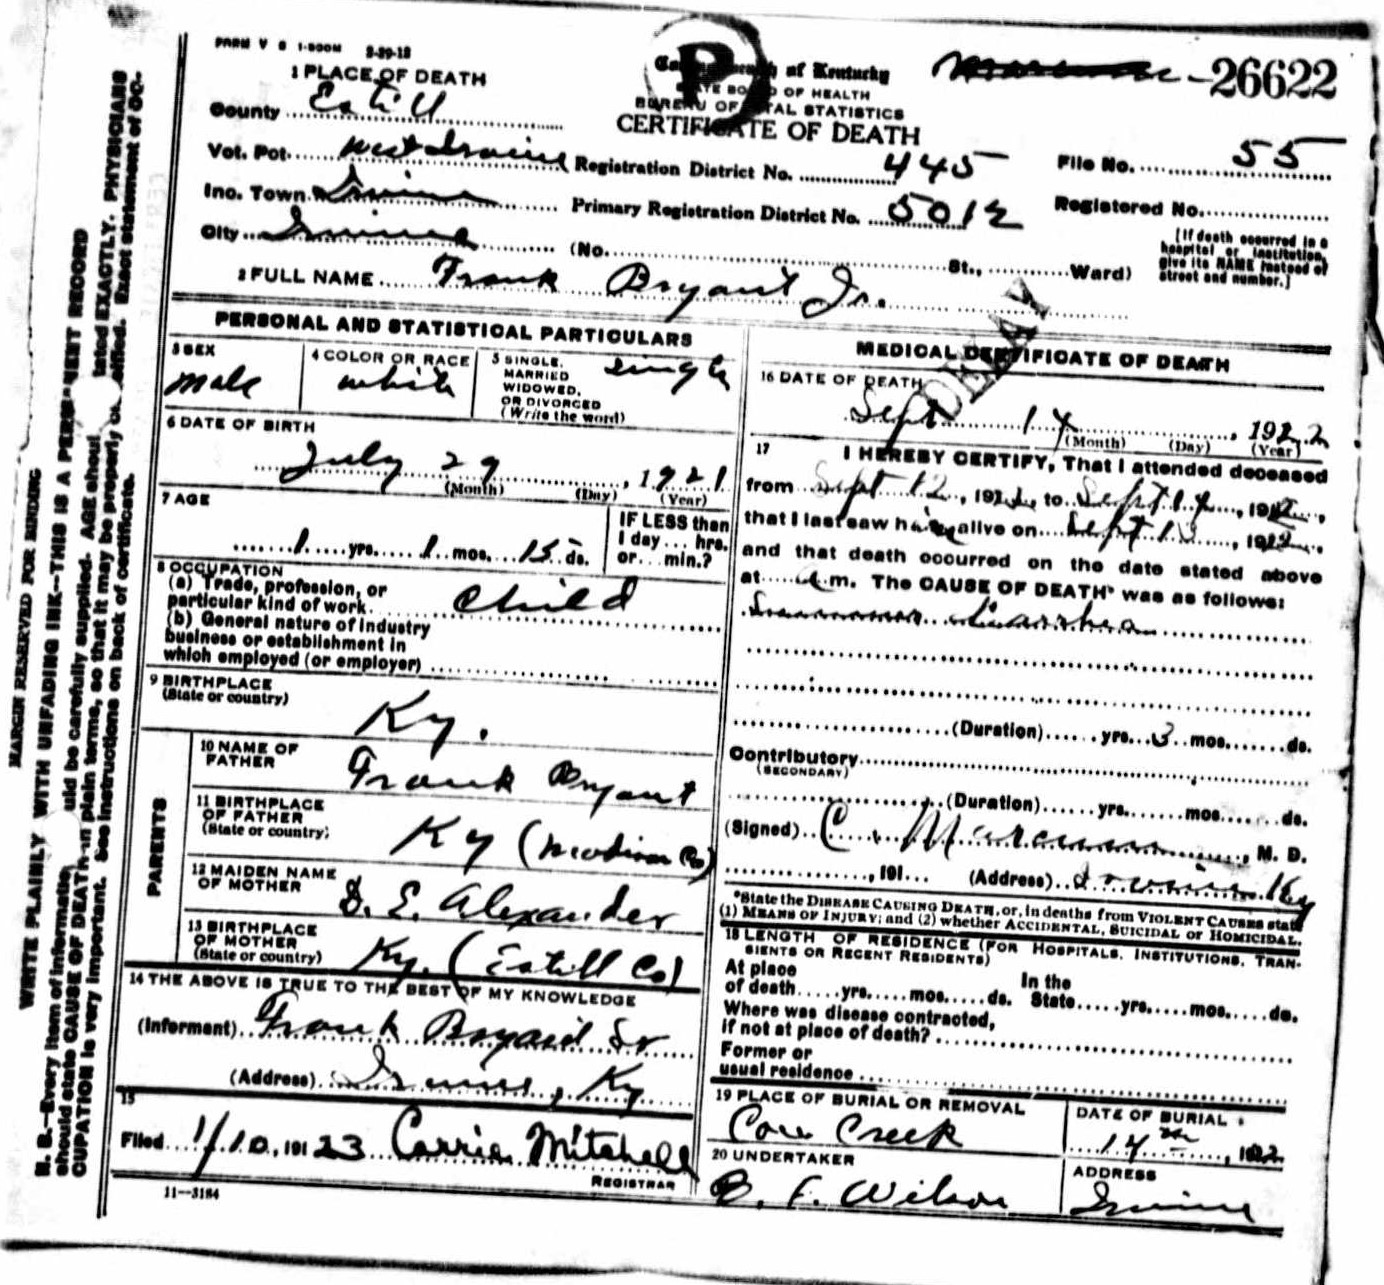 FORM V S 1-500M 8-29-18
1 PLACE OF DEATH
County Estill
Vot. Pct. West Irvine
Inc. Town Irvine
City Irvine (No. St., Ward)
of Kentucky
STATE BOARD OF HEALTH
BUREAU OF VITAL STATISTICS
CERTIFICATE OF DEATH
-26622
Registration District No. 445
Primary Registration District No. 5012
File No. 55
Registered No.
[If death occurred in a
hospital or institution,
give its NAME instead of
street and number.]
2 FULL NAME Frank Bryant Jr.
DELAY
PERSONAL AND STATISTICAL PARTICULARS
3 SEX
Male
4 COLOR OR RACE
white
5 SINGLE,
MARRIED
WIDOWED,
OR DIVORCED
(Write the word)
single
6 DATE OF BIRTH
July 29, 1921
(Month) (Day) (Year)
7 AGE
1 yrs. 1 mos. 15 ds.
IF LESS than
1 day... hrs.
or... min.?
8 OCCUPATION
(a) Trade, profession, or
particular kind of work child
(b) General nature of industry
business or establishment in
which employed (or employer)
9 BIRTHPLACE
(State or country)
Ky.
PARENTS
10 NAME OF
FATHER
Frank Bryant
11 BIRTHPLACE
OF FATHER
(State or country)
Ky (Madison Co)
12 MAIDEN NAME
OF MOTHER
D. E. Alexander
13 BIRTHPLACE
OF MOTHER
(State or country)
Ky. (Estill Co)
14 THE ABOVE IS TRUE TO THE BEST OF MY KNOWLEDGE
(Informant) Frank Bryant Sr
(Address) Irvine, Ky
15
Filed 1/10, 19123 Carrie Mitchell
REGISTRAR
11—3184
MEDICAL CERTIFICATE OF DEATH
16 DATE OF DEATH
Sept 14, 1922
(Month) (Day) (Year)
17 I HEREBY CERTIFY, That I attended deceased
from Sept 12, 1922, to Sept 14, 1922,
that I last saw him alive on Sept 13, 1922,
and that death occurred on the date stated above
at a.m. The CAUSE OF DEATH* was as follows:
Summer Diarrhea
(Duration) yrs. 3 mos. ds.
Contributory
(SECONDARY)
(Duration) yrs. mos. ds.
(Signed) C. Marcum, M. D.
, 191 (Address) Irvine Ky
*State the DISEASE CAUSING DEATH, or, in deaths from VIOLENT CAUSES state
(1) MEANS OF INJURY; and (2) whether ACCIDENTAL, SUICIDAL or HOMICIDAL.
18 LENGTH OF RESIDENCE (FOR HOSPITALS, INSTITUTIONS, TRAN-
SIENTS OR RECENT RESIDENTS)
At place
of death yrs. mos. ds.
In the
State yrs. mos. ds.
Where was disease contracted,
if not at place of death?
Former or
usual residence
19 PLACE OF BURIAL OR REMOVAL
Cow Creek
DATE OF BURIAL
14th, 1922
20 UNDERTAKER
B. F. Wilson
ADDRESS
Irvine
MARGIN RESERVED FOR BINDING
WRITE PLAINLY WITH UNFADING INK—THIS IS A PERMANENT RECORD
N. B.—Every item of information should be carefully supplied. AGE should be stated EXACTLY. PHYSICIANS
should state CAUSE OF DEATH in plain terms, so that it may be properly classified. Exact statement of OC-
CUPATION is very important. See instructions on back of certificate.